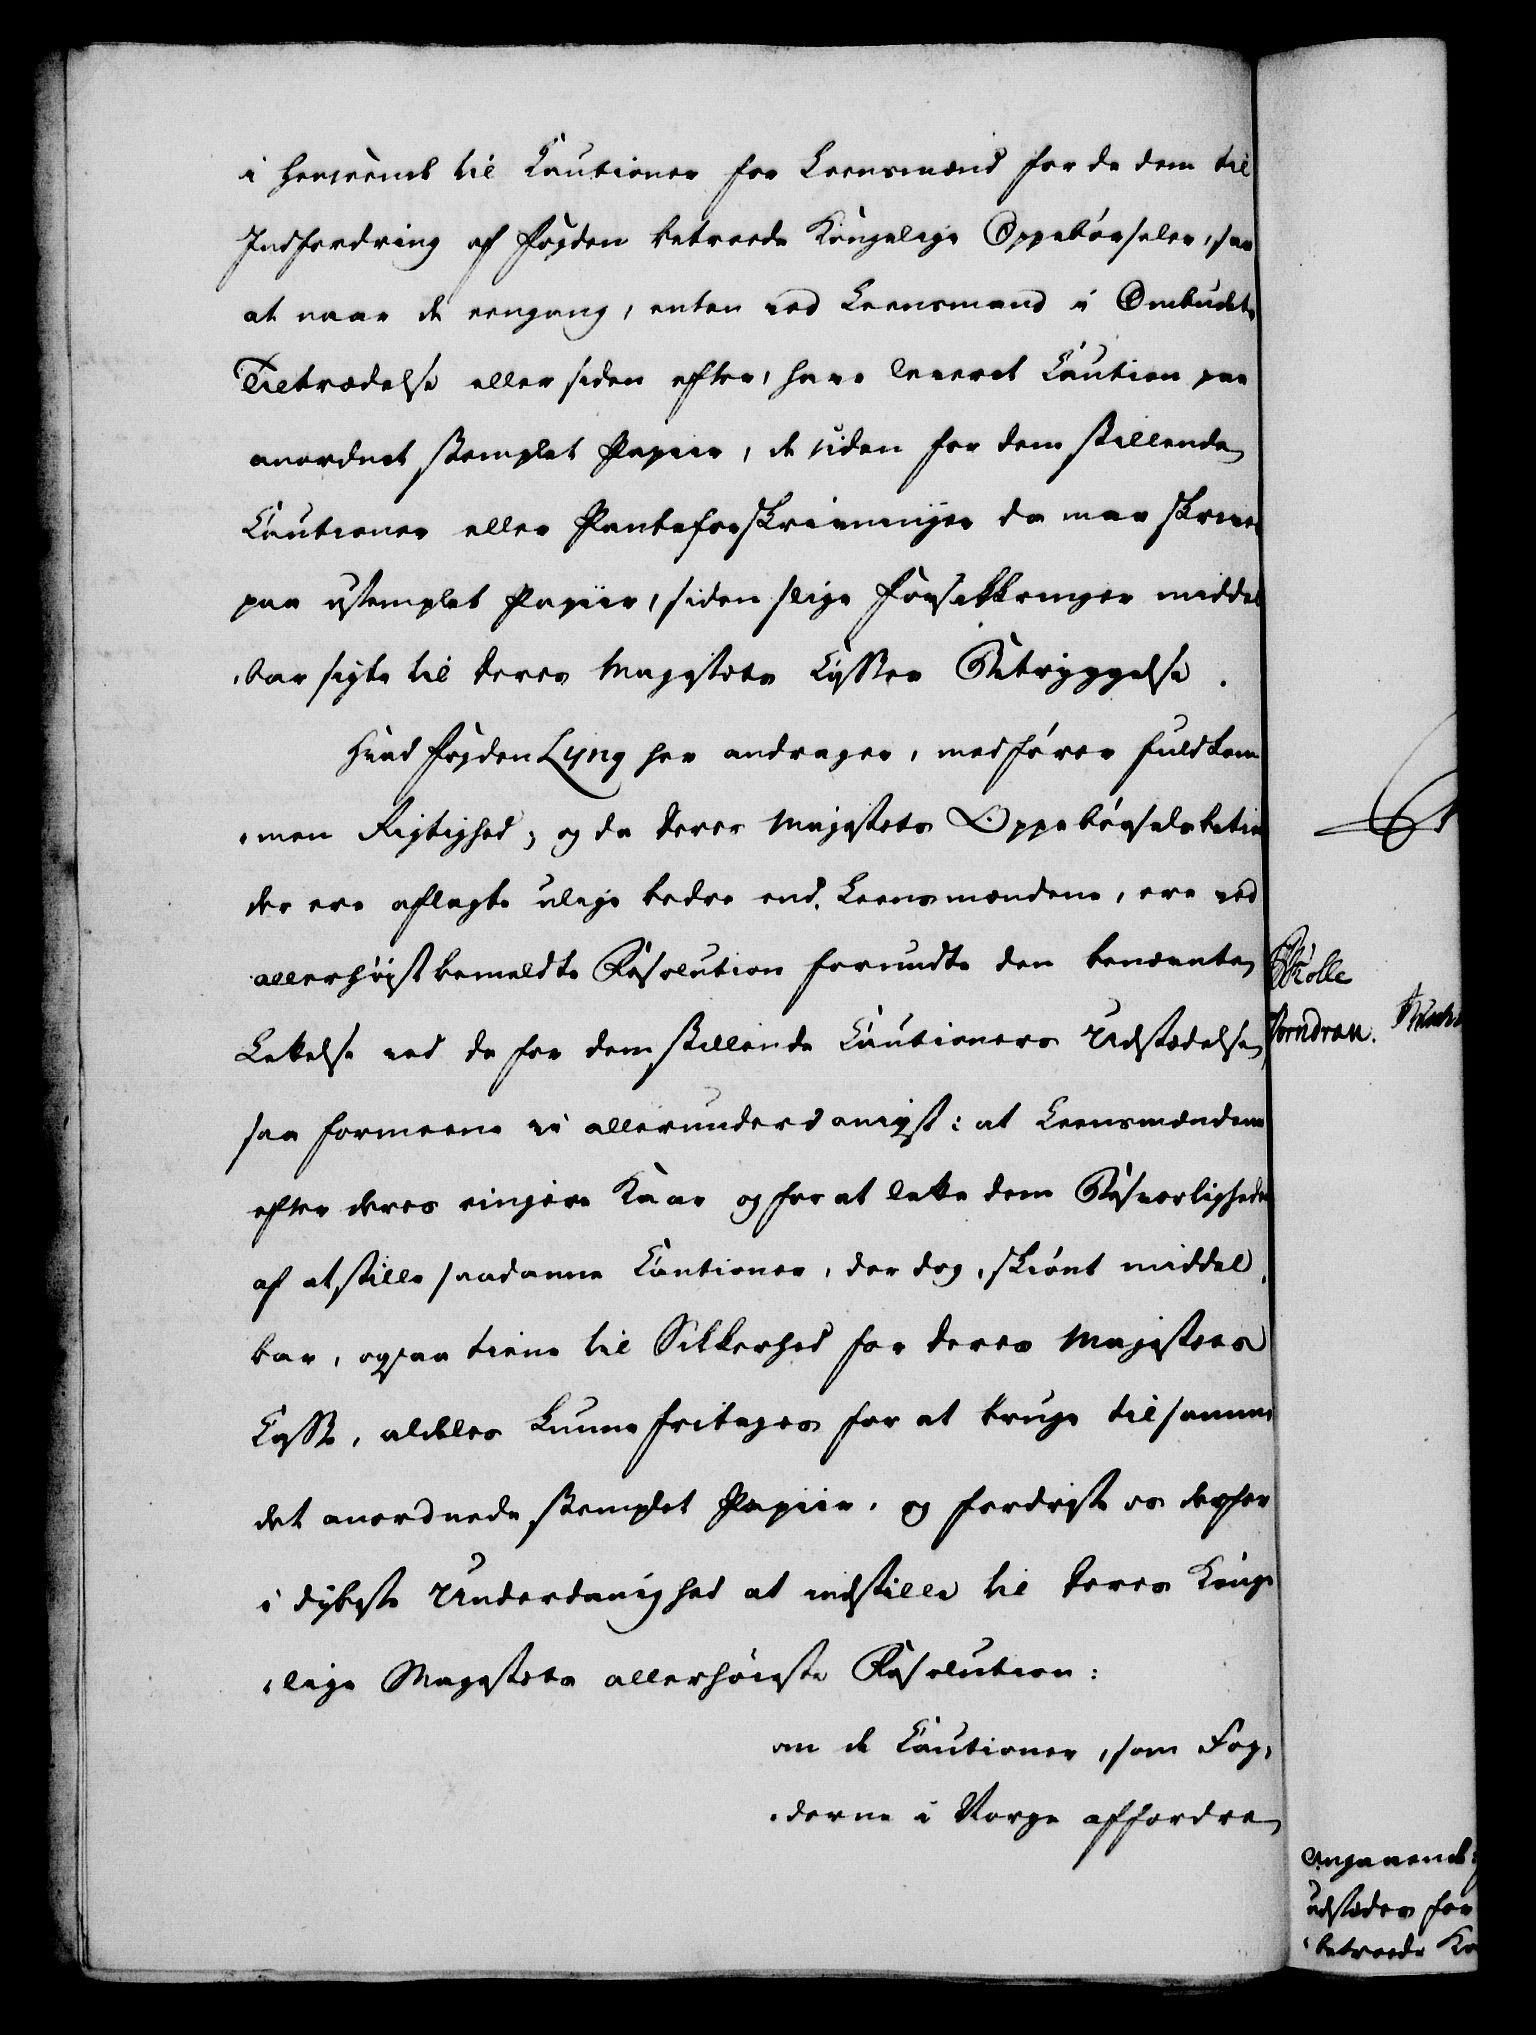 i Henseende til Cautioner for Leensmænd for de dem til
Indfordring af Fogden betroede Kongelige Oppebørseler, saa
at naar de eengang, enten ved Leensmand i Ombudets
Tiltrædelse eller siden efter, have leveret Caution paa
anordnet stemplet Papiir, de siden for dem stillende
Cautioner eller Panteforskrivninger da maa skrives
paa ustemplet Papiir, siden slige Forsikkringer middel
bar sigte til Deres Majestets Casses Betryggelse.
Hvad Fogden Lyng her andrager, medfører fuldkom
men Rigtighed; og da Deres Majestets Oppebørselsbetien
der ere aflagte ulige bedre end Leensmændene, ere ved
allerhøist bemeldte Resolution forundte den benævnte
Lettelse ved de for dem stillende Cautioners Udstædelse
saa formeene vi allerunderdanigst: at Leensmændene
efter deres ringere Kaar og for at lette dem Besværligheden
af at stille saadanne Cautioner, der dog, skiønt middel
bar, ogsaa tiene til Sikkerhed for Deres Majestets
Casse, aldeles kunne fritages for at bruge til samme
det anordnede stemplet Papiir, og fordriste os derfor
i dybeste Underdanighed at indstille til Deres Konge
lige Majestets allerhøieste Resolution:
om de Cautioner, som Fog
derne i Norge affordre
Skolle
Vorndran.
Angaaende
udstædes for
betroede Ko